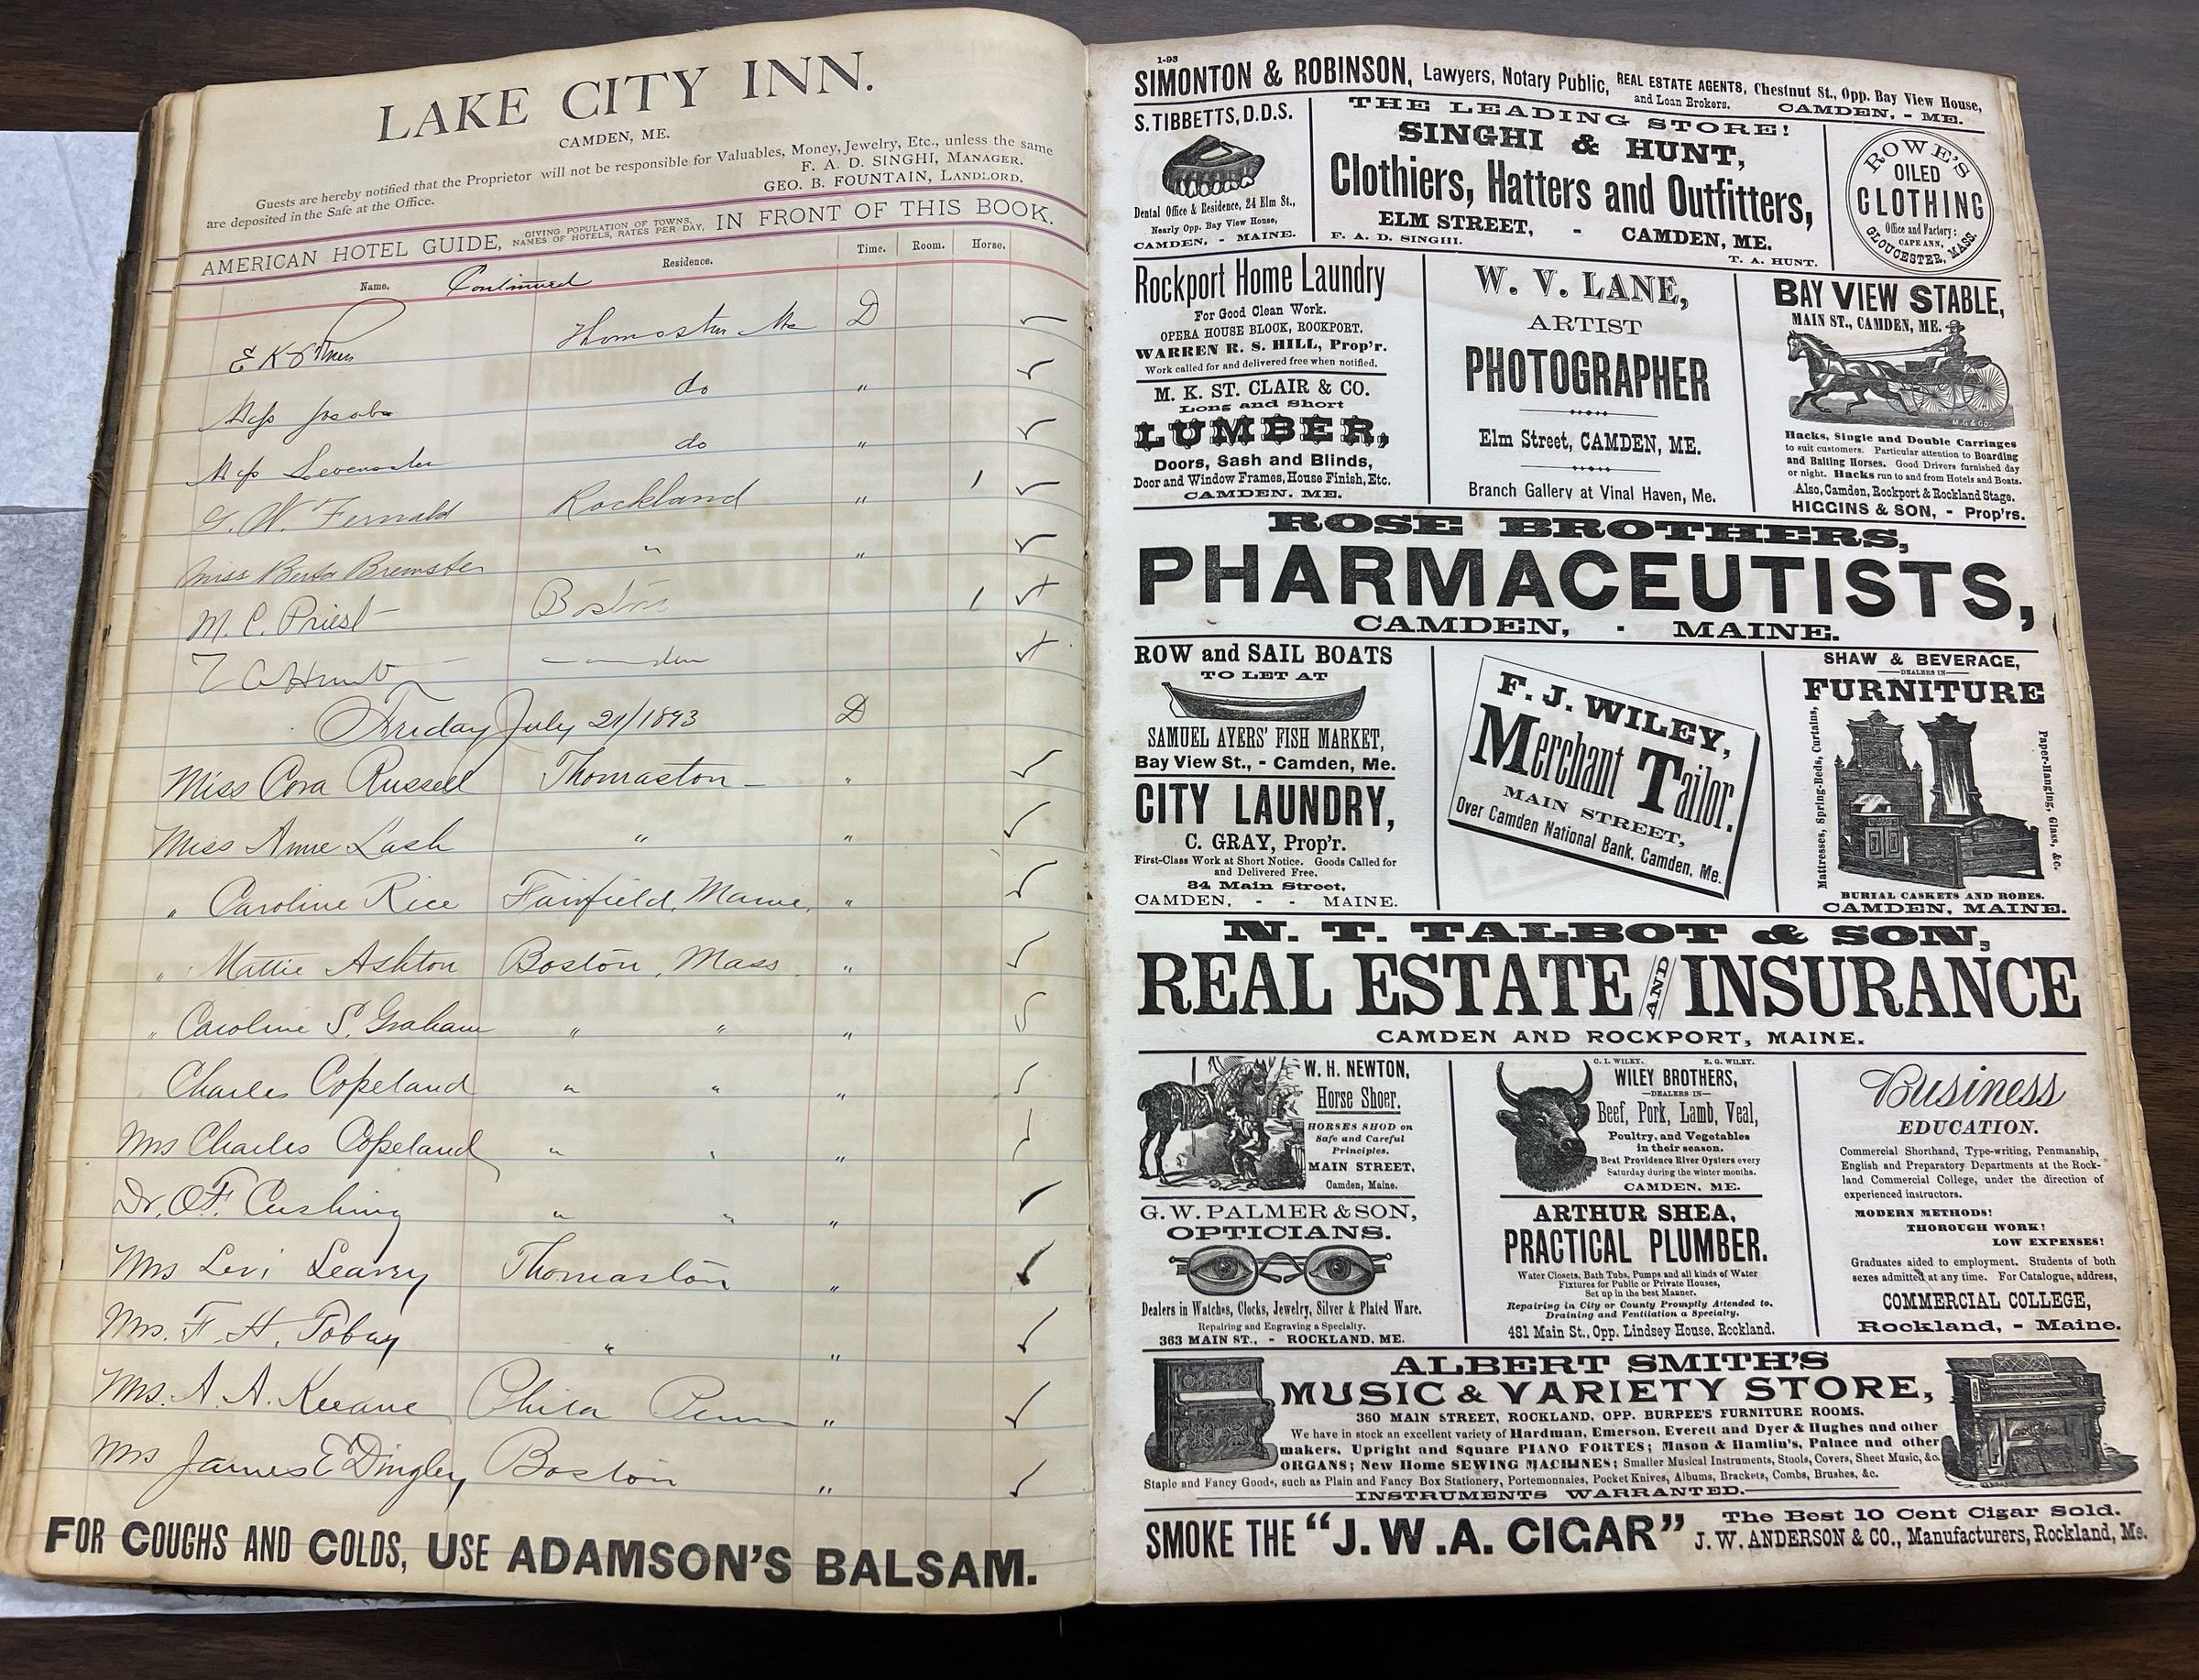 LAKE CITY INN.
CAMDEN, ME.
Guests are hereby notified that the Proprietor will not be responsible for Valuables, Money, Jewelry, Etc., unless the same
are deposited in the Safe at the Office.
F. A. D. SINGHI, MANAGER.
GEO. B. FOUNTAIN, LANDLORD.
AMERICAN HOTEL GUIDE, GIVING POPULATION OF TOWNS, NAMES OF HOTELS, RATES PER DAY, IN FRONT OF THIS BOOK.
Name. Residence. Time. Room. Horse.
Continued
E K Thomaston Me D
Miss Jacobs do "
Miss Levensaler do "
G. W. Fernald Rockland " 1
Miss Berta Brewster " "
M. C. Priest Boston 1
T A Hunt Camden
Friday July 21/1893 D
Miss Cora Russell Thomaston "
Miss Anne Lash " "
" Caroline Rice Fairfield, Maine, "
" Mattie Ashton Boston, Mass. "
" Caroline S. Graham " " "
Charles Copeland " " "
Mrs Charles Copeland " " "
Dr. O.F. Cushing " " "
Mrs Levi Seavey Thomaston "
Mrs. F. H. Tobey " "
Mrs. A. A. Keeane Phila Penn "
Mrs James E Dingley Boston "
FOR COUGHS AND COLDS, USE ADAMSON'S BALSAM.
1-93
SIMONTON & ROBINSON, Lawyers, Notary Public, REAL ESTATE AGENTS, and Loan Brokers. Chestnut St., Opp. Bay View House, CAMDEN, - ME.
S. TIBBETTS, D.D.S.
Dental Office & Residence, 24 Elm St.,
Nearly Opp. Bay View House,
CAMDEN, - MAINE.
THE LEADING STORE!
SINGHI & HUNT,
Clothiers, Hatters and Outfitters,
ELM STREET, - CAMDEN, ME.
F. A. D. SINGHI. T. A. HUNT.
ROWE'S
OILED
CLOTHING
Office and Factory:
CAPE ANN,
GLOUCESTER, MASS.
Rockport Home Laundry
For Good Clean Work.
OPERA HOUSE BLOCK, ROCKPORT.
WARREN R. S. HILL, Prop'r.
Work called for and delivered free when notified.
M. K. ST. CLAIR & CO.
Long and Short
LUMBER,
Doors, Sash and Blinds,
Door and Window Frames, House Finish, Etc.
CAMDEN, ME.
W. V. LANE,
ARTIST
PHOTOGRAPHER
Elm Street, CAMDEN, ME.
Branch Gallery at Vinal Haven, Me.
BAY VIEW STABLE,
MAIN ST., CAMDEN, ME.
M.G & CO.
Hacks, Single and Double Carriages
to suit customers. Particular attention to Boarding
and Baiting Horses. Good Drivers furnished day
or night. Hacks run to and from Hotels and Boats.
Also, Camden, Rockport & Rockland Stage.
HIGGINS & SON, - Prop'rs.
ROSE BROTHERS,
PHARMACEUTISTS,
CAMDEN, - MAINE.
ROW and SAIL BOATS
TO LET AT
SAMUEL AYERS' FISH MARKET,
Bay View St., - Camden, Me.
CITY LAUNDRY,
C. GRAY, Prop'r.
First-Class Work at Short Notice. Goods Called for
and Delivered Free.
34 Main Street,
CAMDEN, - - MAINE.
F. J. WILEY,
Merchant Tailor.
MAIN STREET,
Over Camden National Bank, Camden, Me.
SHAW & BEVERAGE,
DEALERS IN
FURNITURE
Mattresses, Spring-Beds, Curtains,
Paper-Hanging, Glass, &c.
BURIAL CASKETS AND ROBES.
CAMDEN, MAINE.
N. T. TALBOT & SON,
REAL ESTATE AND INSURANCE
CAMDEN AND ROCKPORT, MAINE.
W. H. NEWTON,
Horse Shoer.
HORSES SHOD on
Safe and Careful
Principles.
MAIN STREET,
Camden, Maine.
G. W. PALMER & SON,
OPTICIANS.
Dealers in Watches, Clocks, Jewelry, Silver & Plated Ware.
Repairing and Engraving a Specialty.
363 MAIN ST., - ROCKLAND, ME.
C. I. WILEY. E. G. WILEY.
WILEY BROTHERS,
DEALERS IN
Beef, Pork, Lamb, Veal,
Poultry, and Vegetables
in their season.
Best Providence River Oysters every
Saturday during the winter months.
CAMDEN, ME.
ARTHUR SHEA,
PRACTICAL PLUMBER.
Water Closets, Bath Tubs, Pumps and all kinds of Water
Fixtures for Public or Private Houses,
Set up in the best Manner.
Repairing in City or County Promptly Attended to.
Draining and Ventilation a Specialty.
481 Main St., Opp. Lindsey House, Rockland.
Business
EDUCATION.
Commercial Shorthand, Type-writing, Penmanship,
English and Preparatory Departments at the Rock-
land Commercial College, under the direction of
experienced instructors.
MODERN METHODS!
THOROUGH WORK!
LOW EXPENSES!
Graduates aided to employment. Students of both
sexes admitted at any time. For Catalogue, address,
COMMERCIAL COLLEGE,
Rockland, - Maine.
ALBERT SMITH'S
MUSIC & VARIETY STORE,
360 MAIN STREET, ROCKLAND, OPP. BURPEE'S FURNITURE ROOMS.
We have in stock an excellent variety of Hardman, Emerson, Everett and Dyer & Hughes and other
makers, Upright and Square PIANO FORTES; Mason & Hamlin's, Palace and other
ORGANS; New Home SEWING MACHINES; Smaller Musical Instruments, Stools, Covers, Sheet Music, &c.
Staple and Fancy Goods, such as Plain and Fancy Box Stationery, Portemonnaies, Pocket Knives, Albums, Brackets, Combs, Brushes, &c.
INSTRUMENTS WARRANTED.
SMOKE THE "J. W. A. CIGAR" The Best 10 Cent Cigar Sold.
J. W. ANDERSON & CO., Manufacturers, Rockland, Me.